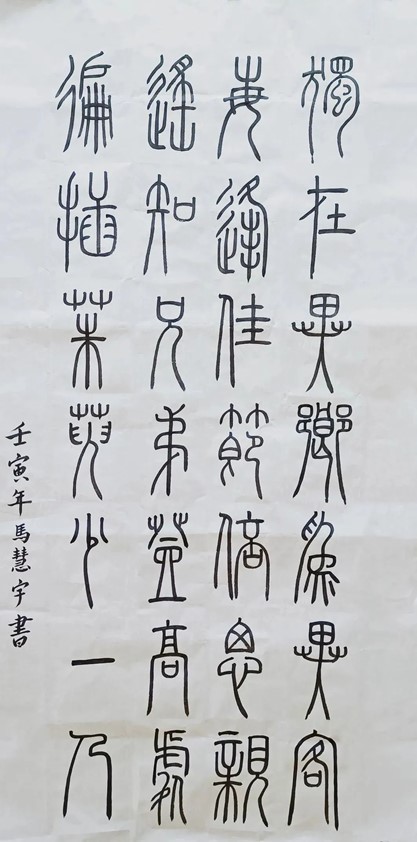 獨在異鄉爲異客
每逢佳節倍思親
遙知兄弟登高處
徧插茱萸少一人
壬寅年馬慧宇書